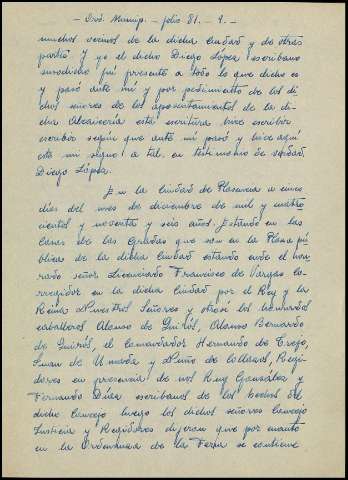 - Ord. Municip. - folio 81. - 9. -
muchos vecinos de la dicha Ciudad y de otras
partes Y yo el dicho Diego López escribano
susodicho fui presente a todo lo que dicho es
y pasó ante mi y por pedimiento de los di
chos señores de los apuntamientos de la di
cha Alcaiceria esta escritura hice escribir
escribir según que ante mi pasó y hice aquí
este mi signo a tal. en testimonio de verdad
Diego López.
En la Ciudad de Plasencia a cinco
días del mes de diciembre de mil y cuatro
cientos y noventa y seis años. Estando en las
Casas de las Gradas que son en la Plaza pú
blicas de la dicha Ciudad estando ende el hon
rado señor Licenciado Francisco de Vargas Co
rregidor en la dicha Ciudad por el Rey y la
Reina Nuestros Señores y otrosí los honrados
caballeros Alonso de Quirós, Alonso Bernardo
de Quirós, el Comendador Hernando de Trejo,
Juan de Almaraz y Nuño de Collazos, Regi
dores en presencia de nos Ruy González y
Fernando Díaz escribanos de los hechos del
dicho Concejo luego los dichos señores Concejo
Justicia y Regidores dijeron que por cuanto
en la Ordenanza de la Feria se contiene